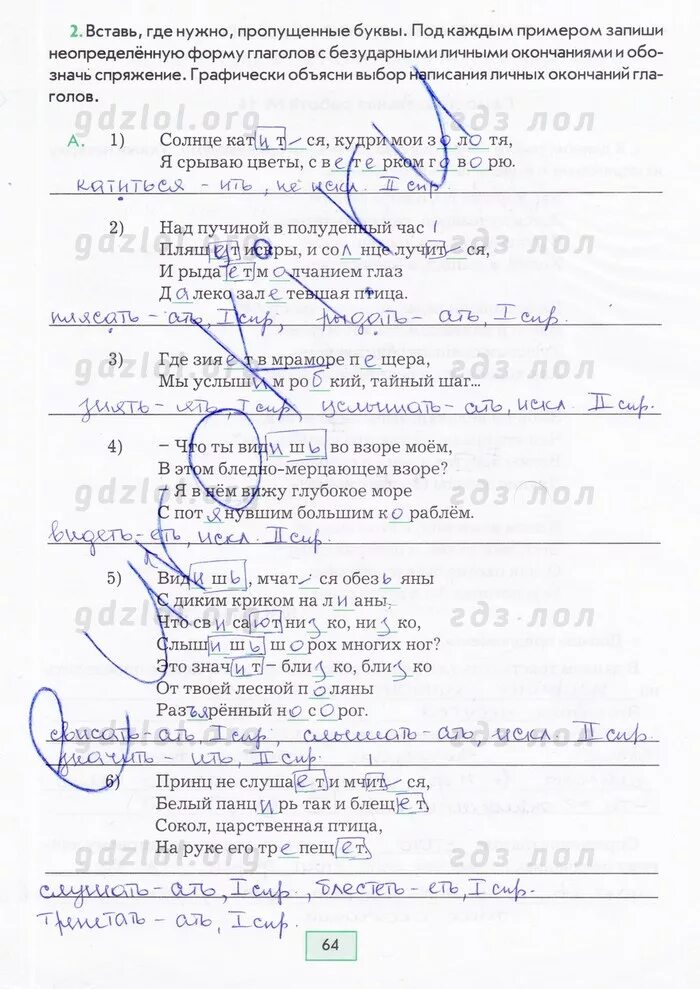 2. Вставь, где нужно, пропущенные буквы. Под каждым примером запиши
неопределённую форму глаголов с безударными личными окончаниями и обо-
значь спряжение. Графически объясни выбор написания личных окончаний гла-
голов.
gdzlol.org гдз лол
А. 1) Солнце катит ся, кудри мои золотя,
Я срываю цветы, с ветерком говорю.
катиться – ить, не искл. II спр.
2) Над пучиной в полуденный час
gdzlol.org гдз лол
Пляшет искры, и солнце лучит ся,
И рыдает молчанием глаз
Далеко залетевшая птица.
плясать – ать, I спр; рыдать – ать, I спр.
3) Где зияет в мраморе пещера,
gdzlol.org гдз лол
Мы услышим робкий, тайный шаг...
зиять – ять, I спр; услышать – ать, искл. II спр.
4) – Что ты видишь во взоре моём,
В этом бледно-мерцающем взоре?
– Я в нём вижу глубокое море
gdzlol.org гдз лол
С потянувшим большим кораблём.
видеть – еть, искл. II спр.
5) Видишь, мчат ся обезьяны
С диким криком на лианы,
gdzlol.org гдз лол
Что свисают низко, низко,
Слышишь шорох многих ног?
Это значит – близко, близко
От твоей лесной поляны
Разъярённый носорог.
gdzlol.org гдз лол
свисать – ать I спр; слышать – ать, искл. II спр.
значить – ить, II спр.
6) Принц не слушает и мчит ся,
Белый панцирь так и блещет,
Сокол, царственная птица,
На руке его трепещет,
gdzlol.org гдз лол
слушать – ать, I спр., блестеть – еть, I спр.
трепетать – ать, I спр.
64